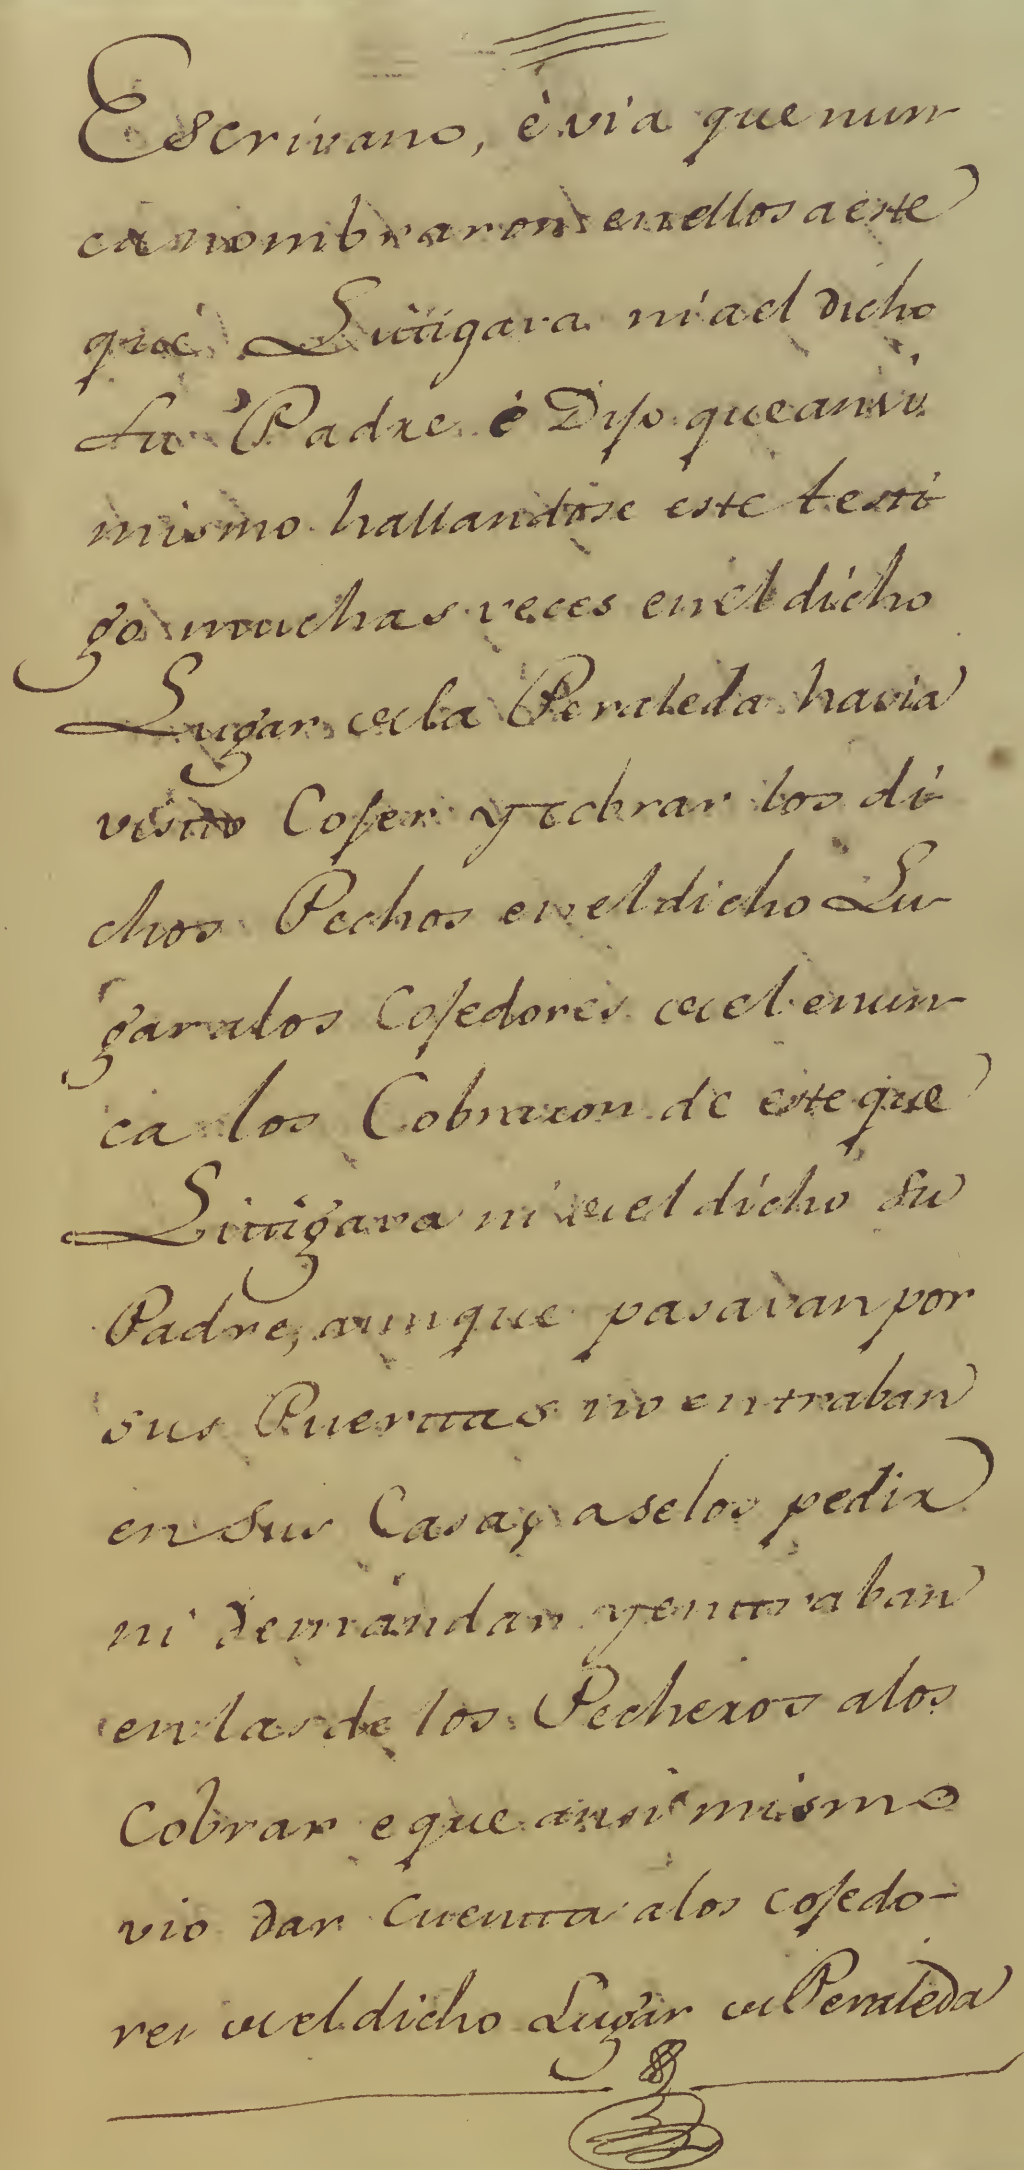 Escrivano, è via que nun-
ca nombraron en ellos a este
que Littigara ni a el dicho
su Padre è Dijo que ansi
mismo hallandose este testi-
go muchas veces en el dicho
Lugar de la Peraleda havia
visto Cojer y cobrar los di-
chos Pechos en el dicho Lu-
gar a los Cojedores de el e nun-
ca los Cobraron de este que
Littigara ni de el dicho su
Padre, aunque pasavan por
sus Puerttas no entraban
en sus Casas a selos pedir
ni demandar y enttraban
en las de los Pecheros a los
Cobrar e que ansi mismo
vio dar cuentta a los cojedo-
res de el dicho Lugar de Peraleda